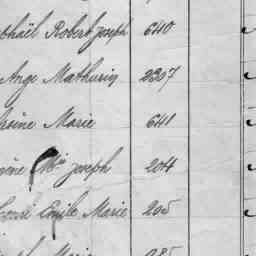 phaël Robert Joseph 640
Ange Mathurin 2307
Marie 641
Joseph 204
Emile Marie 205
Marie 285